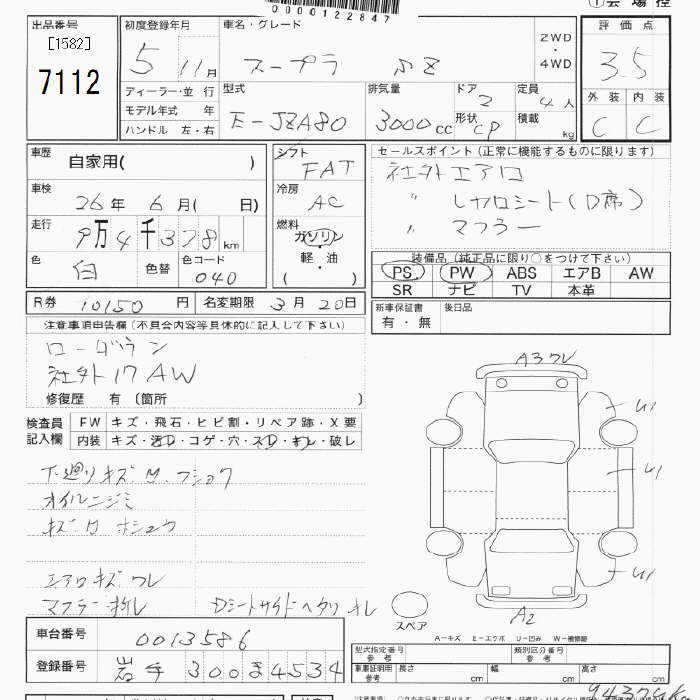 0000122847
①会場控
出品番号
[1582]
7112
初度登録年月
5 11月
車名・グレード
スープラ SZ
2WD
・
4WD
評価点
3.5
外装 内装
C C
ディーラー・並行
モデル年式 年
ハンドル 左・右
型式
E-JZA80
排気量
3000cc
ドア
2
形状
CP
定員
4人
積載
kg
車歴
自家用( )
車検
26年 6月( 日)
走行
9万4千378km
色
白
色替
色コード
040
シフト
FAT
冷房
AC
燃料
ガソリン
・
軽・油
( )
セールスポイント(正常に機能するものに限ります)
社外エアロ
〃 レカロシート(D席)
〃 マフラー
装備品(純正品に限り○をつけて下さい)
PS PW ABS エアB AW
SR ナビ TV 本革
R券 10150円 名変期限 3月20日
新車保証書
有・無
後日品
注意事項申告欄(不具合内容等具体的に記入して下さい)
ローダウン
社外17AW
修復歴 有 〔箇所 〕
検査員
記入欄
FW キズ・飛石・ヒビ割・リペア跡・X要
内装 キズ・汚れ・コゲ・穴・スレ・キレ・破レ
下廻りキズ.M.フショク
オイルニジミ
キズ.M ホシュウ
エアロキズ.ワレ
マフラー折レ Dシートサイドヘタリ オレ
A3ワレ
U1
U1
U1
A2
スペア
A-キズ E-エクボ U-凹み W-補修跡
車台番号 0013586
登録番号 岩手300ま4534
型式指定番号
参考
類別区分番号
参考
車庫証明用
参考
長さ cm 幅 cm 高さ cm